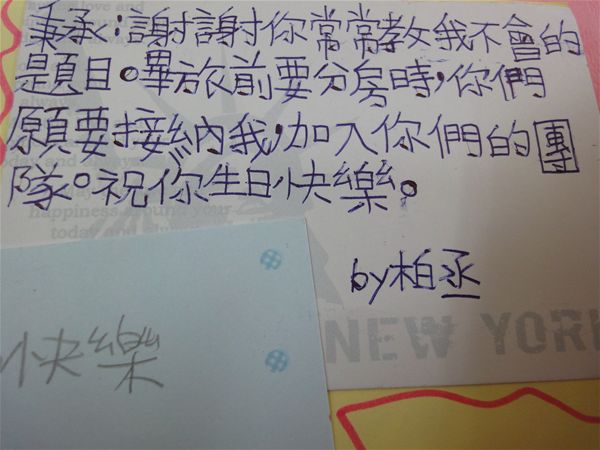 秉承:謝謝你常常教我不會的
題目。畢旅前要分房時,你們
願要接納我,加入你們的團
隊。祝你生日快樂。
by柏丞
NEW YORK
快樂